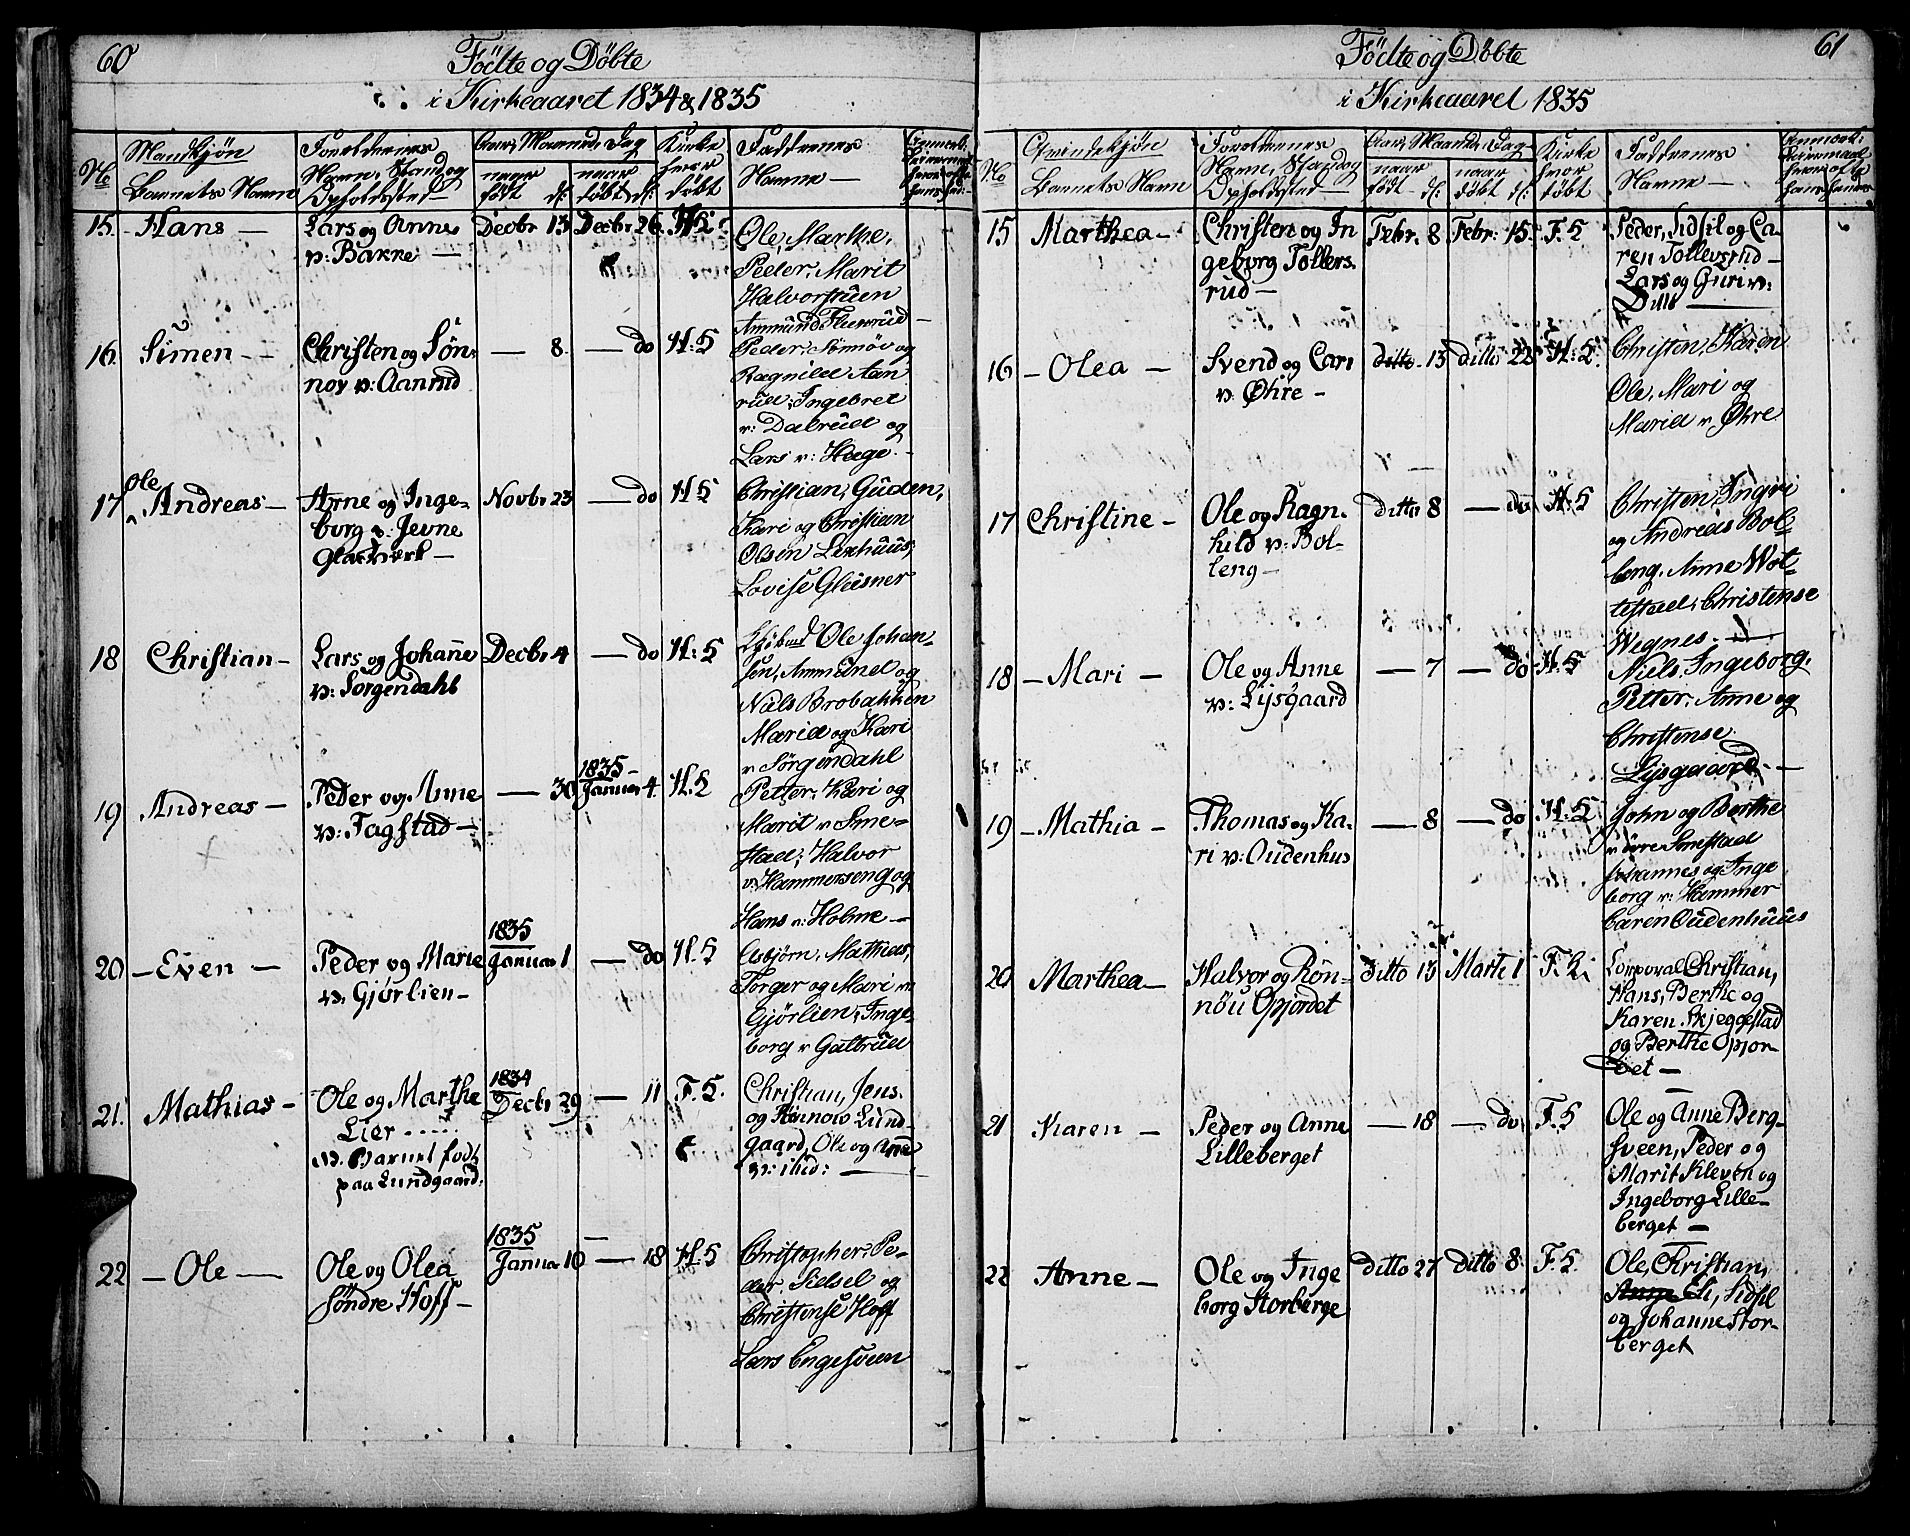 60
Födte og Döbte
i Kirkeaaret 1834 & 1835
No
Mandkjøn
Barnets Navn
Forældrenes
Navn, Stand og
Opholdssted
Aar, Maaned, Dag
naar
født d:
naar
døbt d:
Kirke
hvor
døbt
Faddrenes
Navne —
15. Hans —
Lars og Anne
v: Bakke —
Decbr. 13
Decbr. 26
H: 5
Ole, Marthe,
Peder, Marit
Halvorstuen
Ammund
16. Simen —
Christen og Sön-
nov v: Aanrud
— 8.
— do
H: 5
Peder, Sönnöv og
Ragnild Aan
rud, Ingebret
v: Dalrud og
Lars v: Hage.
17 Ole Andreas —
Arne og Inge-
borg v: Jevne
Glasværk —
Novbr 23
— do
H. 5
Christian, Guden,
Kari og Christian
Olsen Lixhuus,
Lovise Glæsner
18 Christian —
Lars og Johane
v: Sorgendahl
Decbr 4
— do
H: 5
Ole Johan-
sen, Ammund og
Niels Brobakken
Maria og Kari
v Sörgendahl
19 Andreas —
Peder og Anne
v: Fagstad —
— 30
1835 —
Januar 4.
H. 5
Petter, Kari og
Marit v Sme-
stad, Halvor
v: Hammerseng og
Hans v: Holme —
20 — Even —
Peder og Marie
v: Gjørlien —
1835
Januar 1
— do
H. 5
Asbjörn, Mathias,
Torger og Mari v:
Gjörlien, Inge-
borg v Galtrud
21. Mathias —
Ole og Marthe
Lier ....
N. Barnet født
paa Lundgaard.
1834
Decbr 29
— 11
F. 5.
Christian, Jens
og Rönnow Lund-
gaard, Ole og Anne
v: ibid: —
22 — Ole —
Ole og Olea
Söndre Hoff —
1835
Januar 10
— 18
H. 5
Christopher, Pe-
der, Sidsel og
Christense Hoff
Lars Engesveen
61
Födte og Döbte
i Kirkeaaret 1835
No
Qvindekjön
Barnets Navn
Forældrenes
Navne, Stand og
Opholdssted
Aar, Maaned, Dag
naar
født d:
naar
døbt d:
Kirke
hvor
døbt
Faddrenes
Navne —
15 Marthea —
Christen og In
geborg Tollers
rud —
Febr. 8
Febr. 15.
F. 5
Peder, Sidsil og Ca-
ren Tollevsrud —
Lars og Guri v:
Ditto
16 — Olea —
Svend og Cari
v: Øhre —
ditto 13
ditto 22
H: 5.
Christen, Karen
Ole, Mari og
Maria v, Øhre
17 Christine —
Ole og Ragn-
hild v: Bol-
leng —
ditto 8
— do
H. 5
Christen, Ingri
og Andreas Bol-
leng. Anne Wol-
lestad, Christense
Wegnes.
18 — Mari —
Ole og Anne
v: Lysgaard
— 7
— do
H. 5
Niels, Ingeborg,
Petter, Anne og
Christense
Lysgaard. —
19 — Mathia —
Thomas og Ka-
ri v: Oudenhus
— 8
— do
H: 5
John og Berthe
v övre Smestad
Johannes og Inge
borg v: Hammer
Caren Oudenhuus
20 Marthea —
Halvor og Rön-
nöu Opjordet
ditto 15
Marti 1
F. 5.
Corporal Christian,
Hans, Berthe og
Karen Skjeggestad
og Berthe Opjor-
det —
21 Karen —
Peder og Anne
Lilleberget
— 18
— do
F. 5
Ole og Anne Berg-
sveen, Peder og
Marit Kleven og
Ingeborg Lille-
berget —
22 Anne —
Ole og Inge
borg Storberge
ditto 27
ditto 8.
F. 5
Ole, Christian,
Anne Eli, Sidsil
og Johanne Stor-
berget